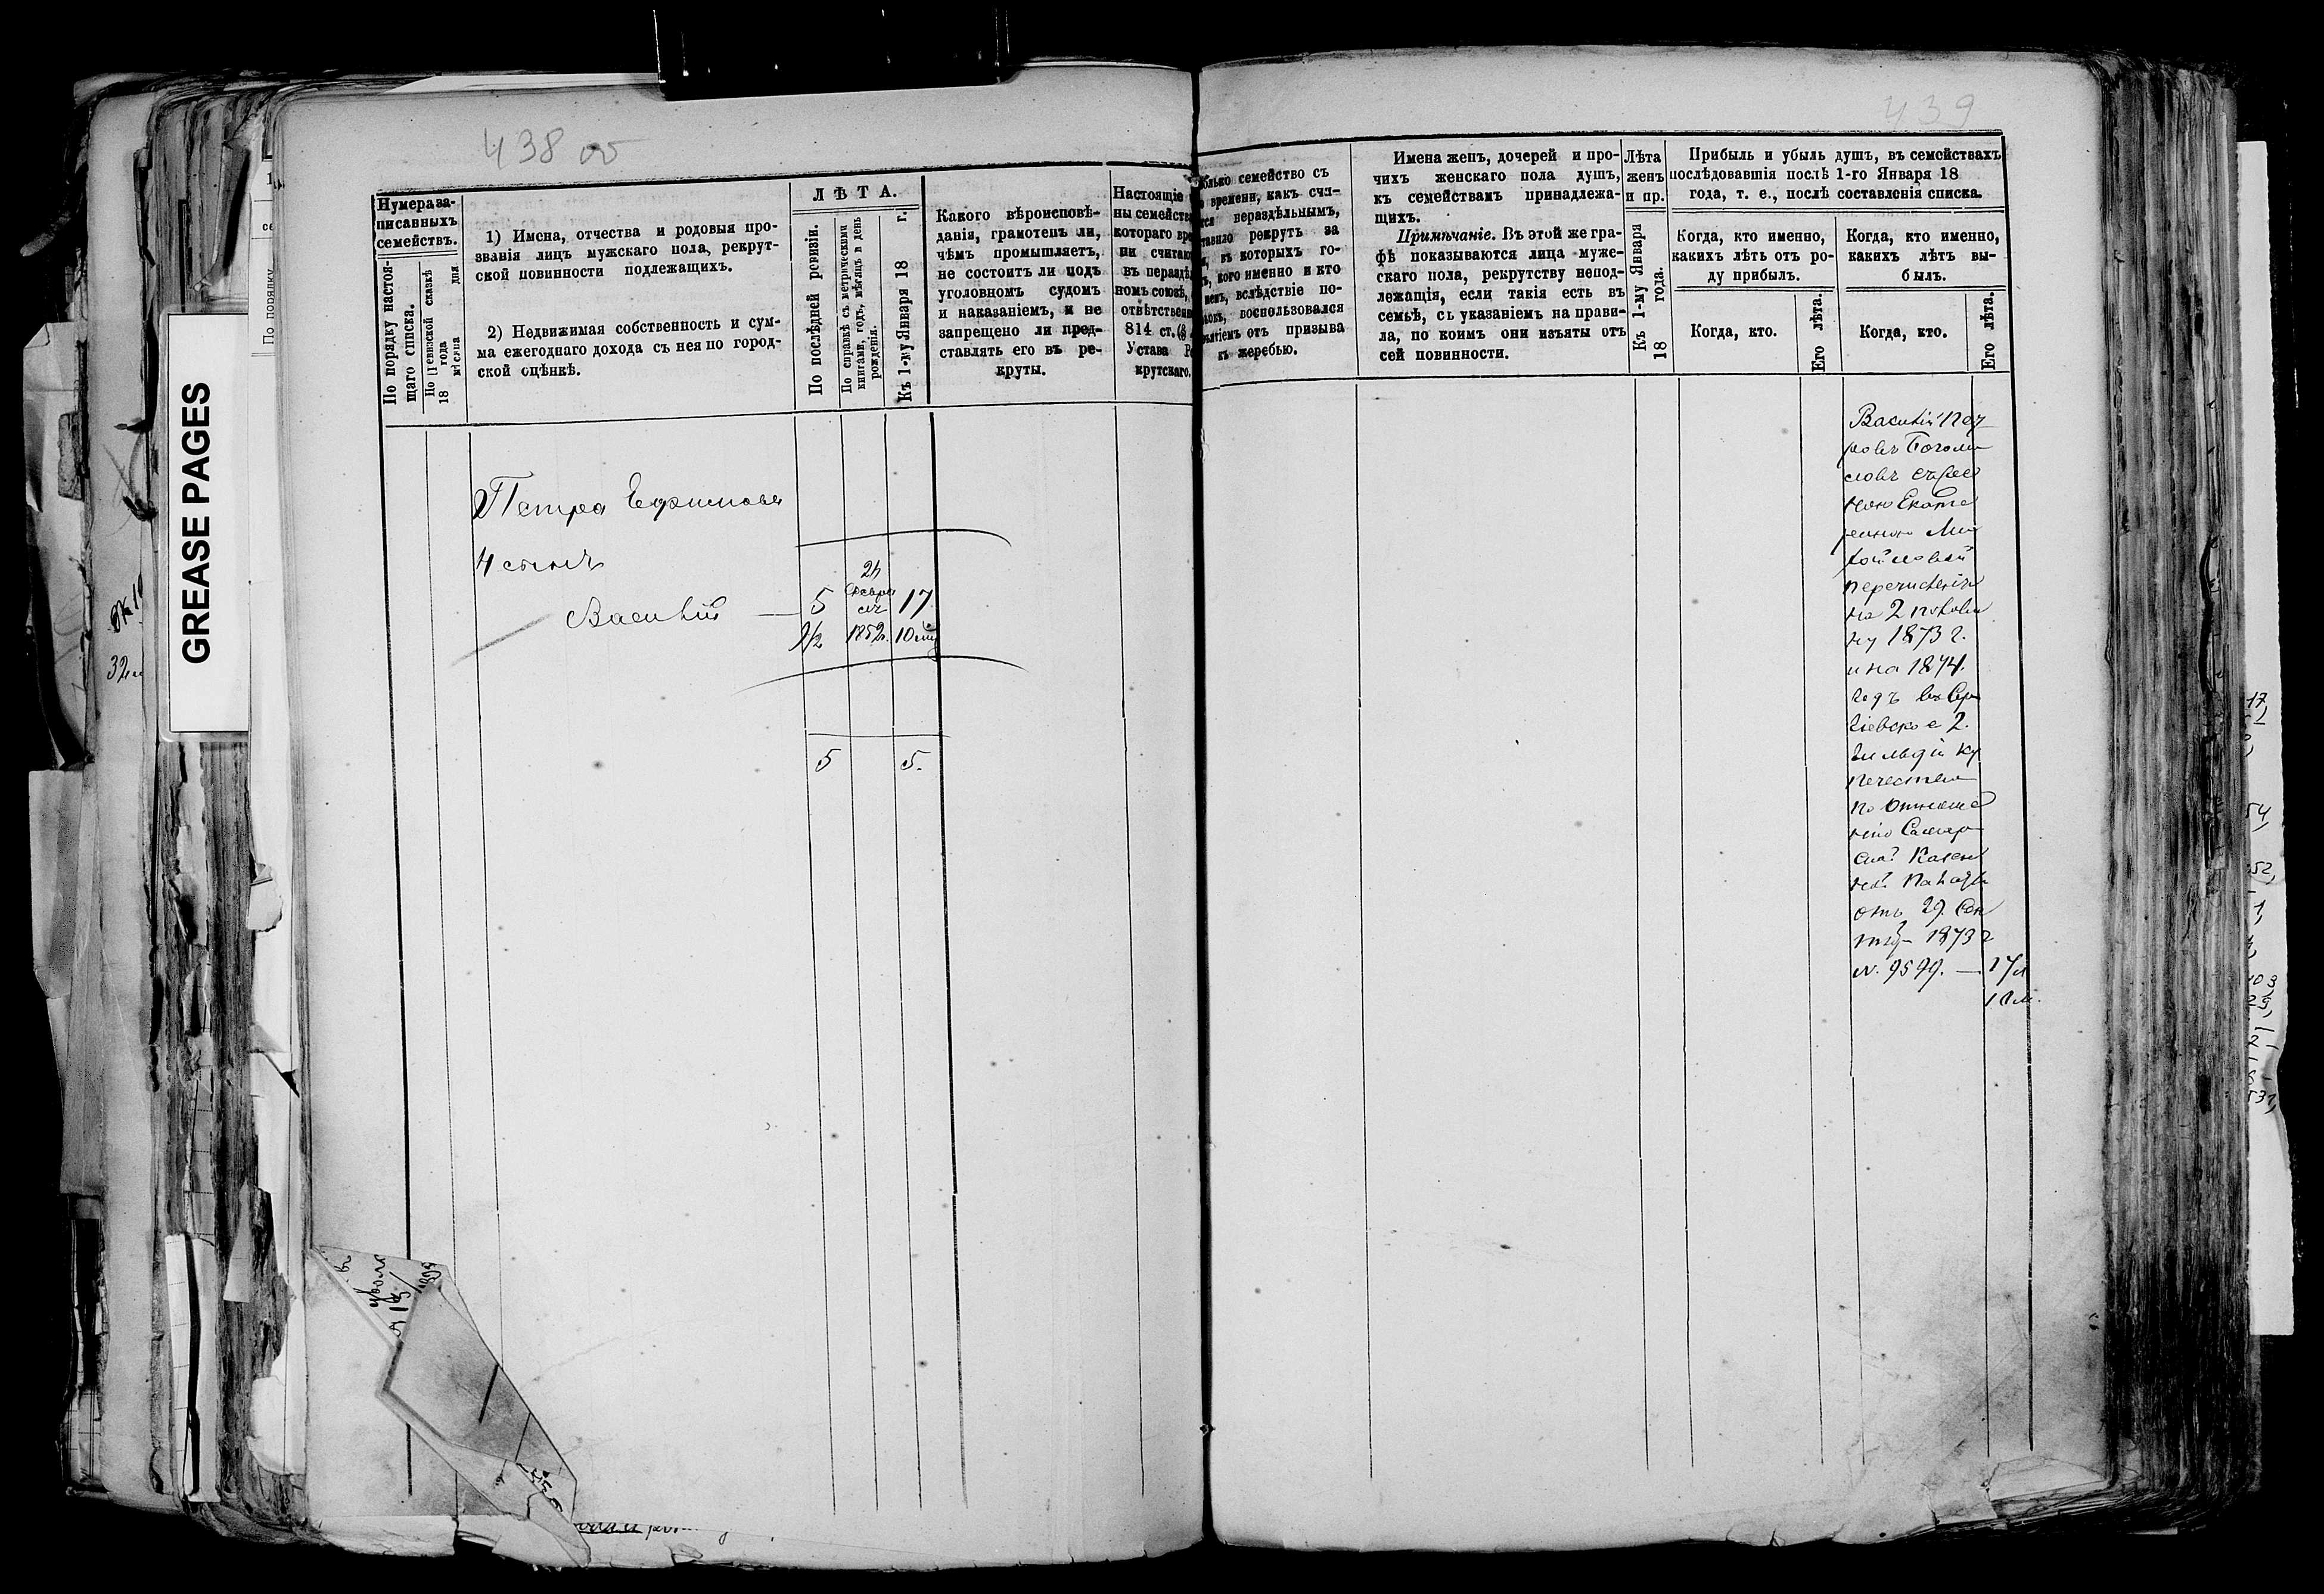 438 об
439
GREASE PAGES
Нумера за-
писанныхъ
семействъ.
По порядку настоя-
щаго списка.
По Ревизской сказкѣ
18 года
мѣсяца дня.
1) Имена, отчества и родовыя про-
званія лицъ мужскаго пола, рекрут-
ской повинности подлежащихъ.
2) Недвижимая собственность и сум-
ма ежегоднаго дохода съ нея по город-
ской оцѣнкѣ.
ЛѢТА.
По послѣдней ревизіи.
По справкѣ съ метрическими
книгами, годъ, мѣсяцъ и день
рожденія.
Къ 1-му Января 18 г.
Какого вѣроисповѣ-
данія, грамотенъ ли,
чѣмъ промышляетъ,
не состоитъ ли подъ
уголовномъ судомъ
и наказаніемъ, и не
запрещено ли пред-
ставлять его въ ре-
круты.
Настоящіе
ны семейств
котораго вре
ни считаю
въ нераздѣ
номъ союзѣ,
отвѣтствен
814 ст.
Устава Ре
крутскаго.
олько семейство съ
о времени, какъ счи-
тся нераздѣльнымъ,
тавило рекрутъ за
въ которыхъ го-
ъ, кого именно и кто
вслѣдствіе по-
воспользовался
ятіемъ отъ призыва
къ жеребью.
Имена женъ, дочерей и про-
чихъ женскаго пола душъ,
къ семействамъ принадлежа-
щихъ.
Примѣчаніе. Въ этой же гра-
фѣ показываются лица муже-
скаго пола, рекрутству непод-
лежащія, если такія есть въ
семьѣ, съ указаніемъ на прави-
ла, по коимъ они изъяты отъ
сей повинности.
Лѣта
женъ
и пр.
Къ 1-му Января
18 года.
Прибыль и убыль душъ, въ семействахъ
послѣдовавшія послѣ 1-го Января 18
года, т. е., послѣ составленія списка.
Когда, кто именно,
какихъ лѣтъ отъ ро-
ду прибылъ.
Когда, кто.
Его лѣта.
Когда, кто именно,
какихъ лѣтъ вы-
былъ.
Когда, кто.
Его лѣта.
Петра Ефимова
4 сынъ
Василій — 5 24 17
1/2 1852г. 10 мц
5 5.
Василій Пет
ровъ Богомо
ловъ съ же
ною Екате
риною Ми
хайловой
перечислены
на 2 полови
ну 1873 г.
и на 1874.
годъ въ Сер
гіевское 2.
гильдіи ку
печество
по отноше
нію Самар
ской Казен
ной Палаты
отъ 29. Сен
тяб 1873 г
№. 9599. — 17 л
10 м.